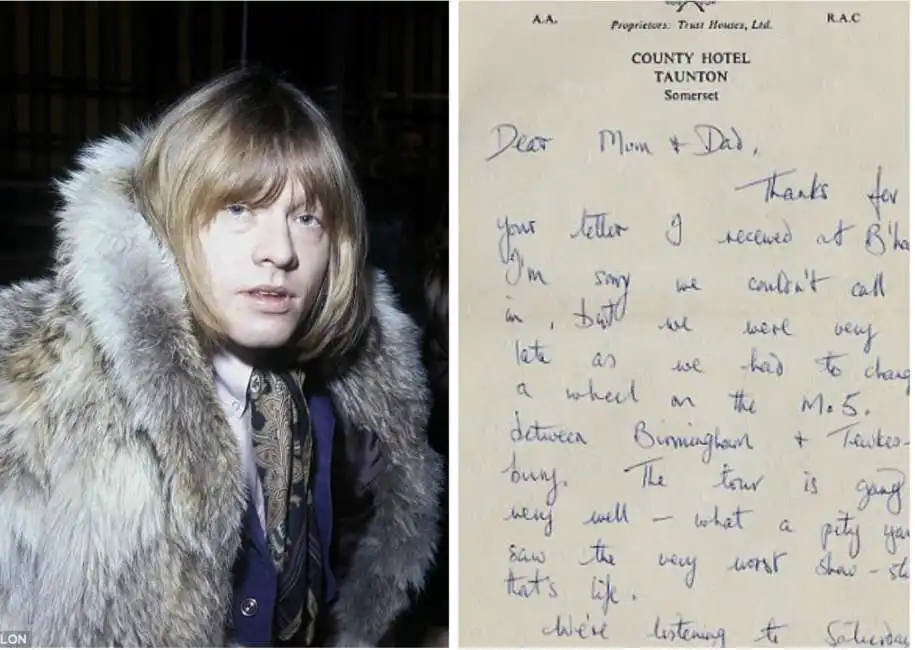 LON
A.A.
R.A.C
Proprietors: Trust Houses, Ltd.
COUNTY HOTEL
TAUNTON
Somerset
Dear Mum + Dad,
Thanks for
your letter I received at B'ha
I'm sorry we couldn't call
in, but we were very
late as we had to chang
a wheel on the M.5.
between Birmingham + Tewkes-
bury. The tour is going
very well – what a pity you
saw the very worst show – sti
that's life.
We're listening to Saturday